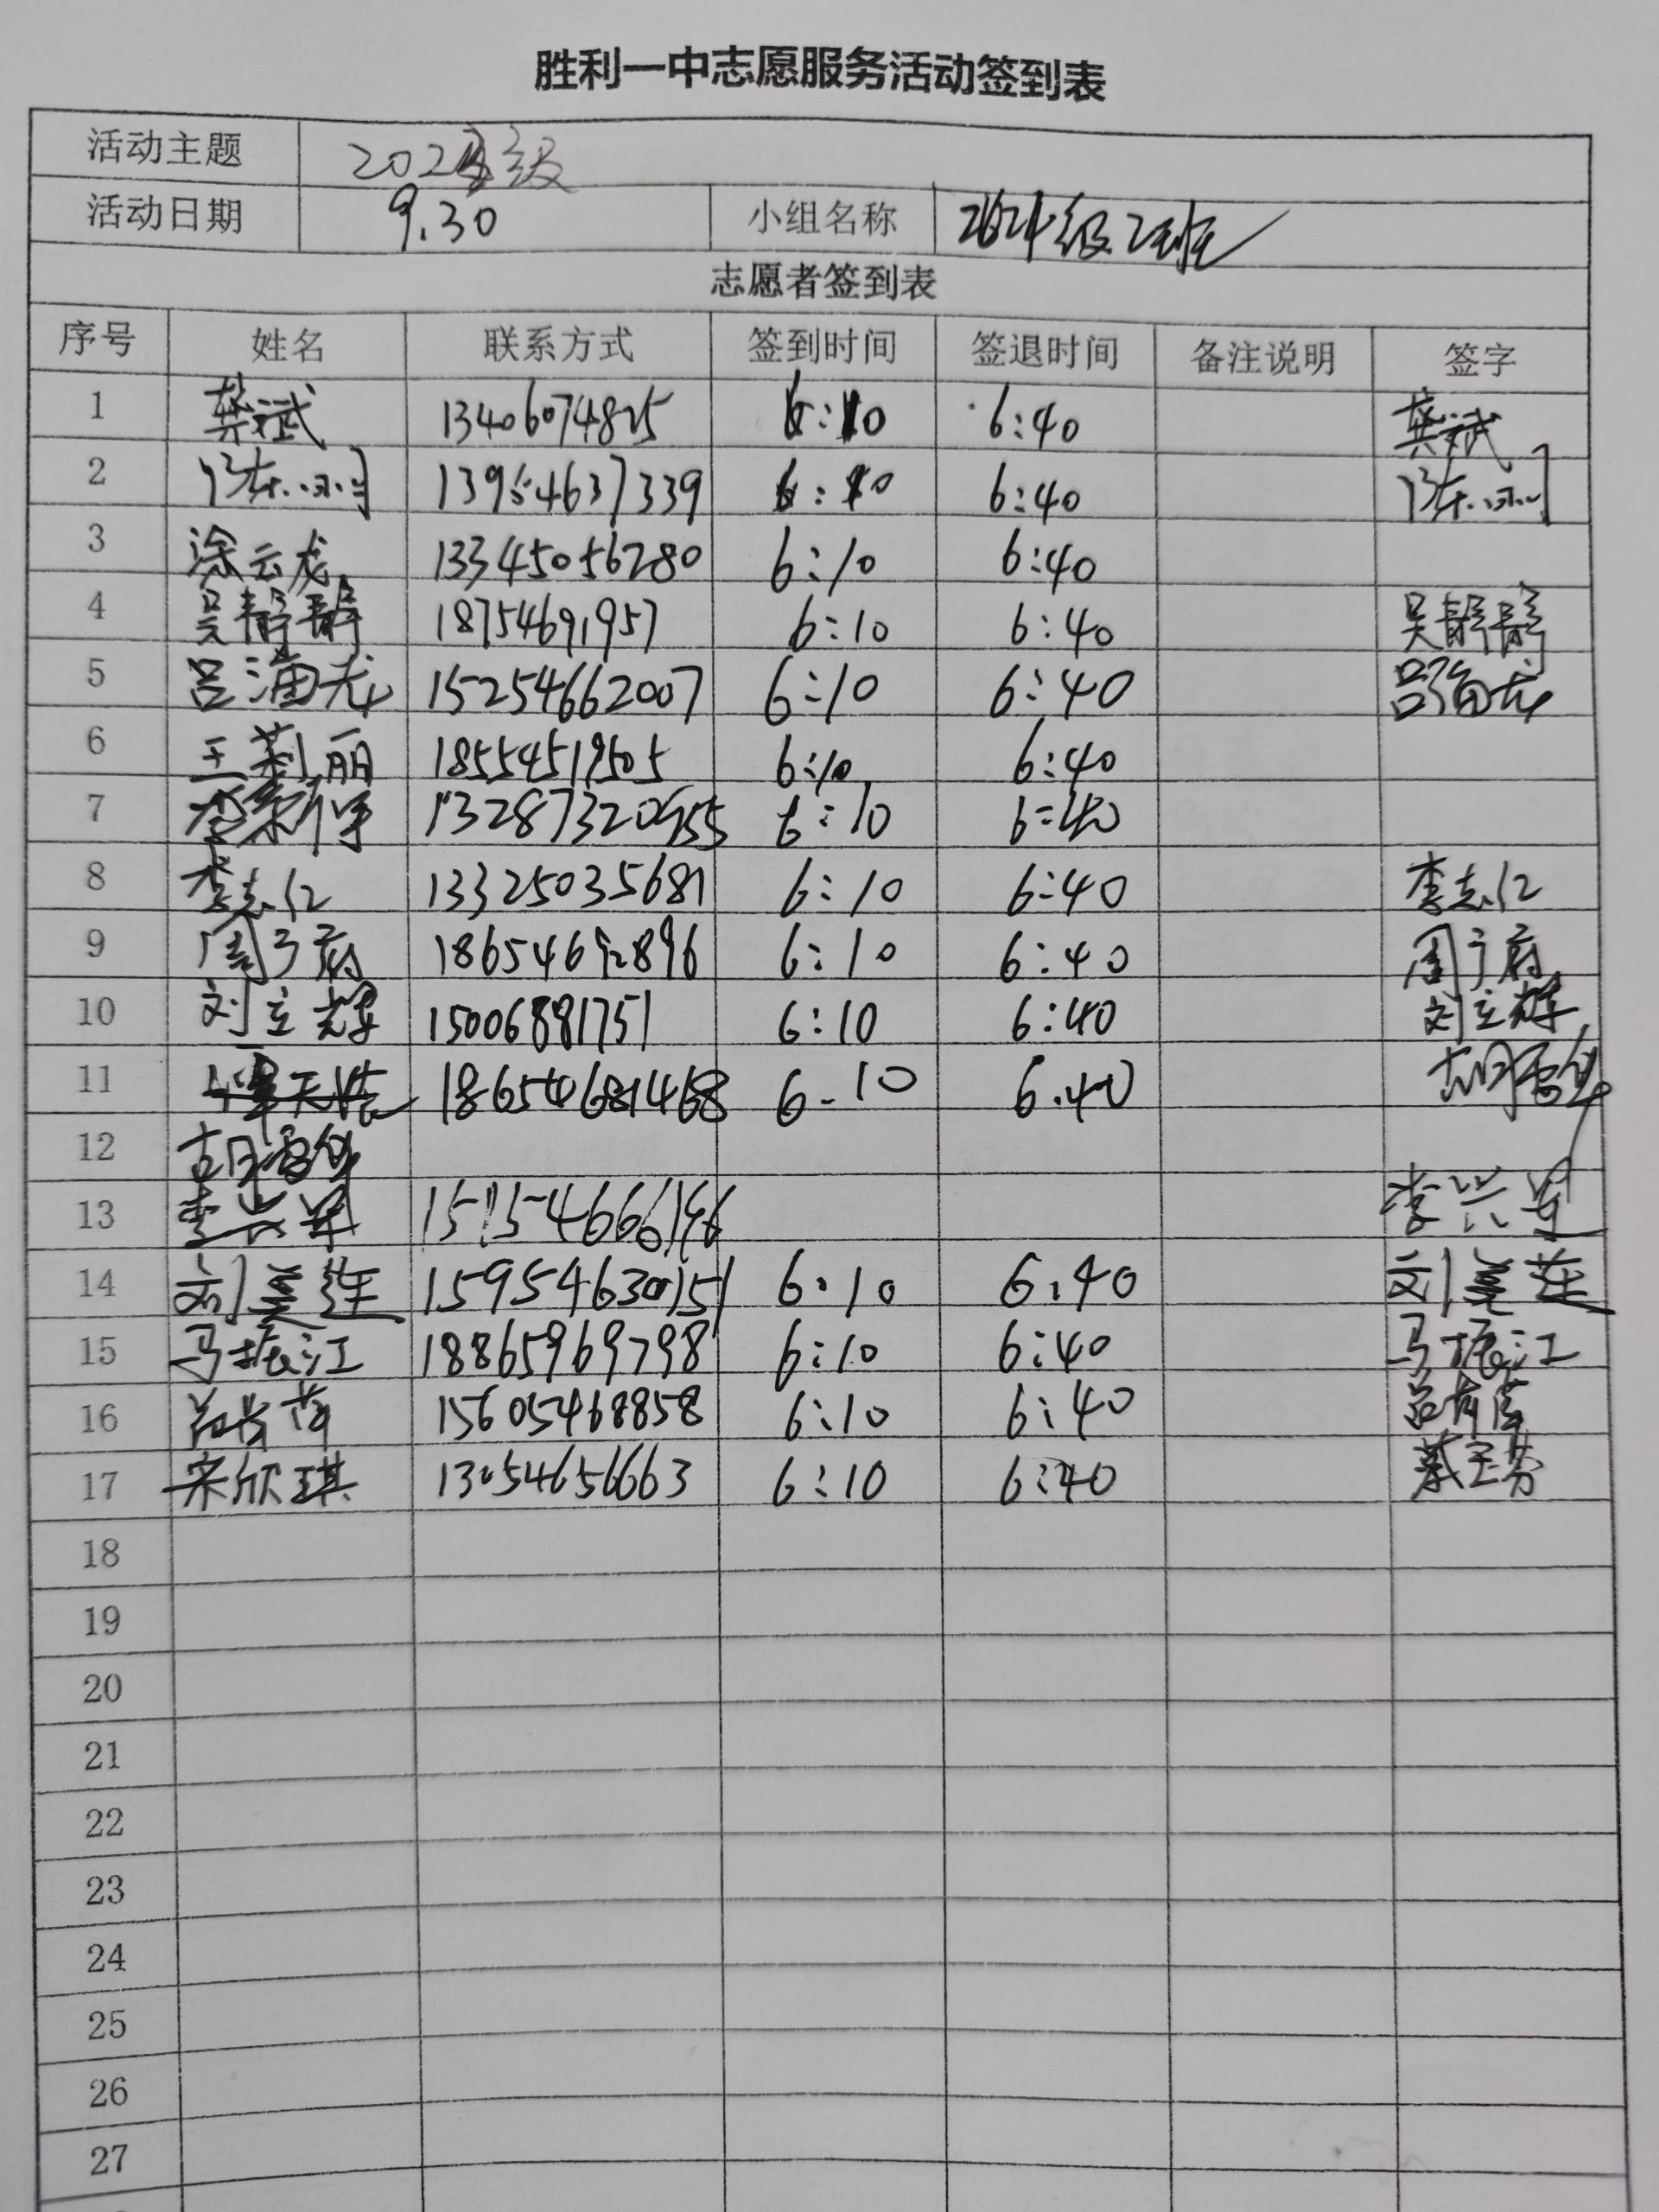 胜利一中志愿服务活动签到表
活动主题 级
活动日期 9.30 小组名称 2024级22班
志愿者签到表
序号 姓名 联系方式 签到时间 签退时间 备注说明 签字
1 龚斌 13406074825 6:10 6:40 龚斌
2 13954637339 6:10 6:40
3 涂云龙 13345056280 6:10 6:40
4 吴静静 18754691957 6:10 6:40 吴静静
5 吕海龙 15254662007 6:10 6:40 吕海龙
6 王莉丽 18554519505 6:10 6:40
7 6:10 6:40
8 李志仁 13325035681 6:10 6:40 李志仁
9 周子府 18654692896 6:10 6:40 周子府
10 刘立辉 15006881751 6:10 6:40 刘立辉
11 18654681468 6-10 6.40
12
13 李兴军 李兴军
14 刘美莲 15954630151 6:10 6:40 刘美莲
15 马振江 18865969798 6:10 6:40 马振江
16 15605468858 6:10 6:40
17 宋欣琪 13054656663 6:10 6:40
18
19
20
21
22
23
24
25
26
27